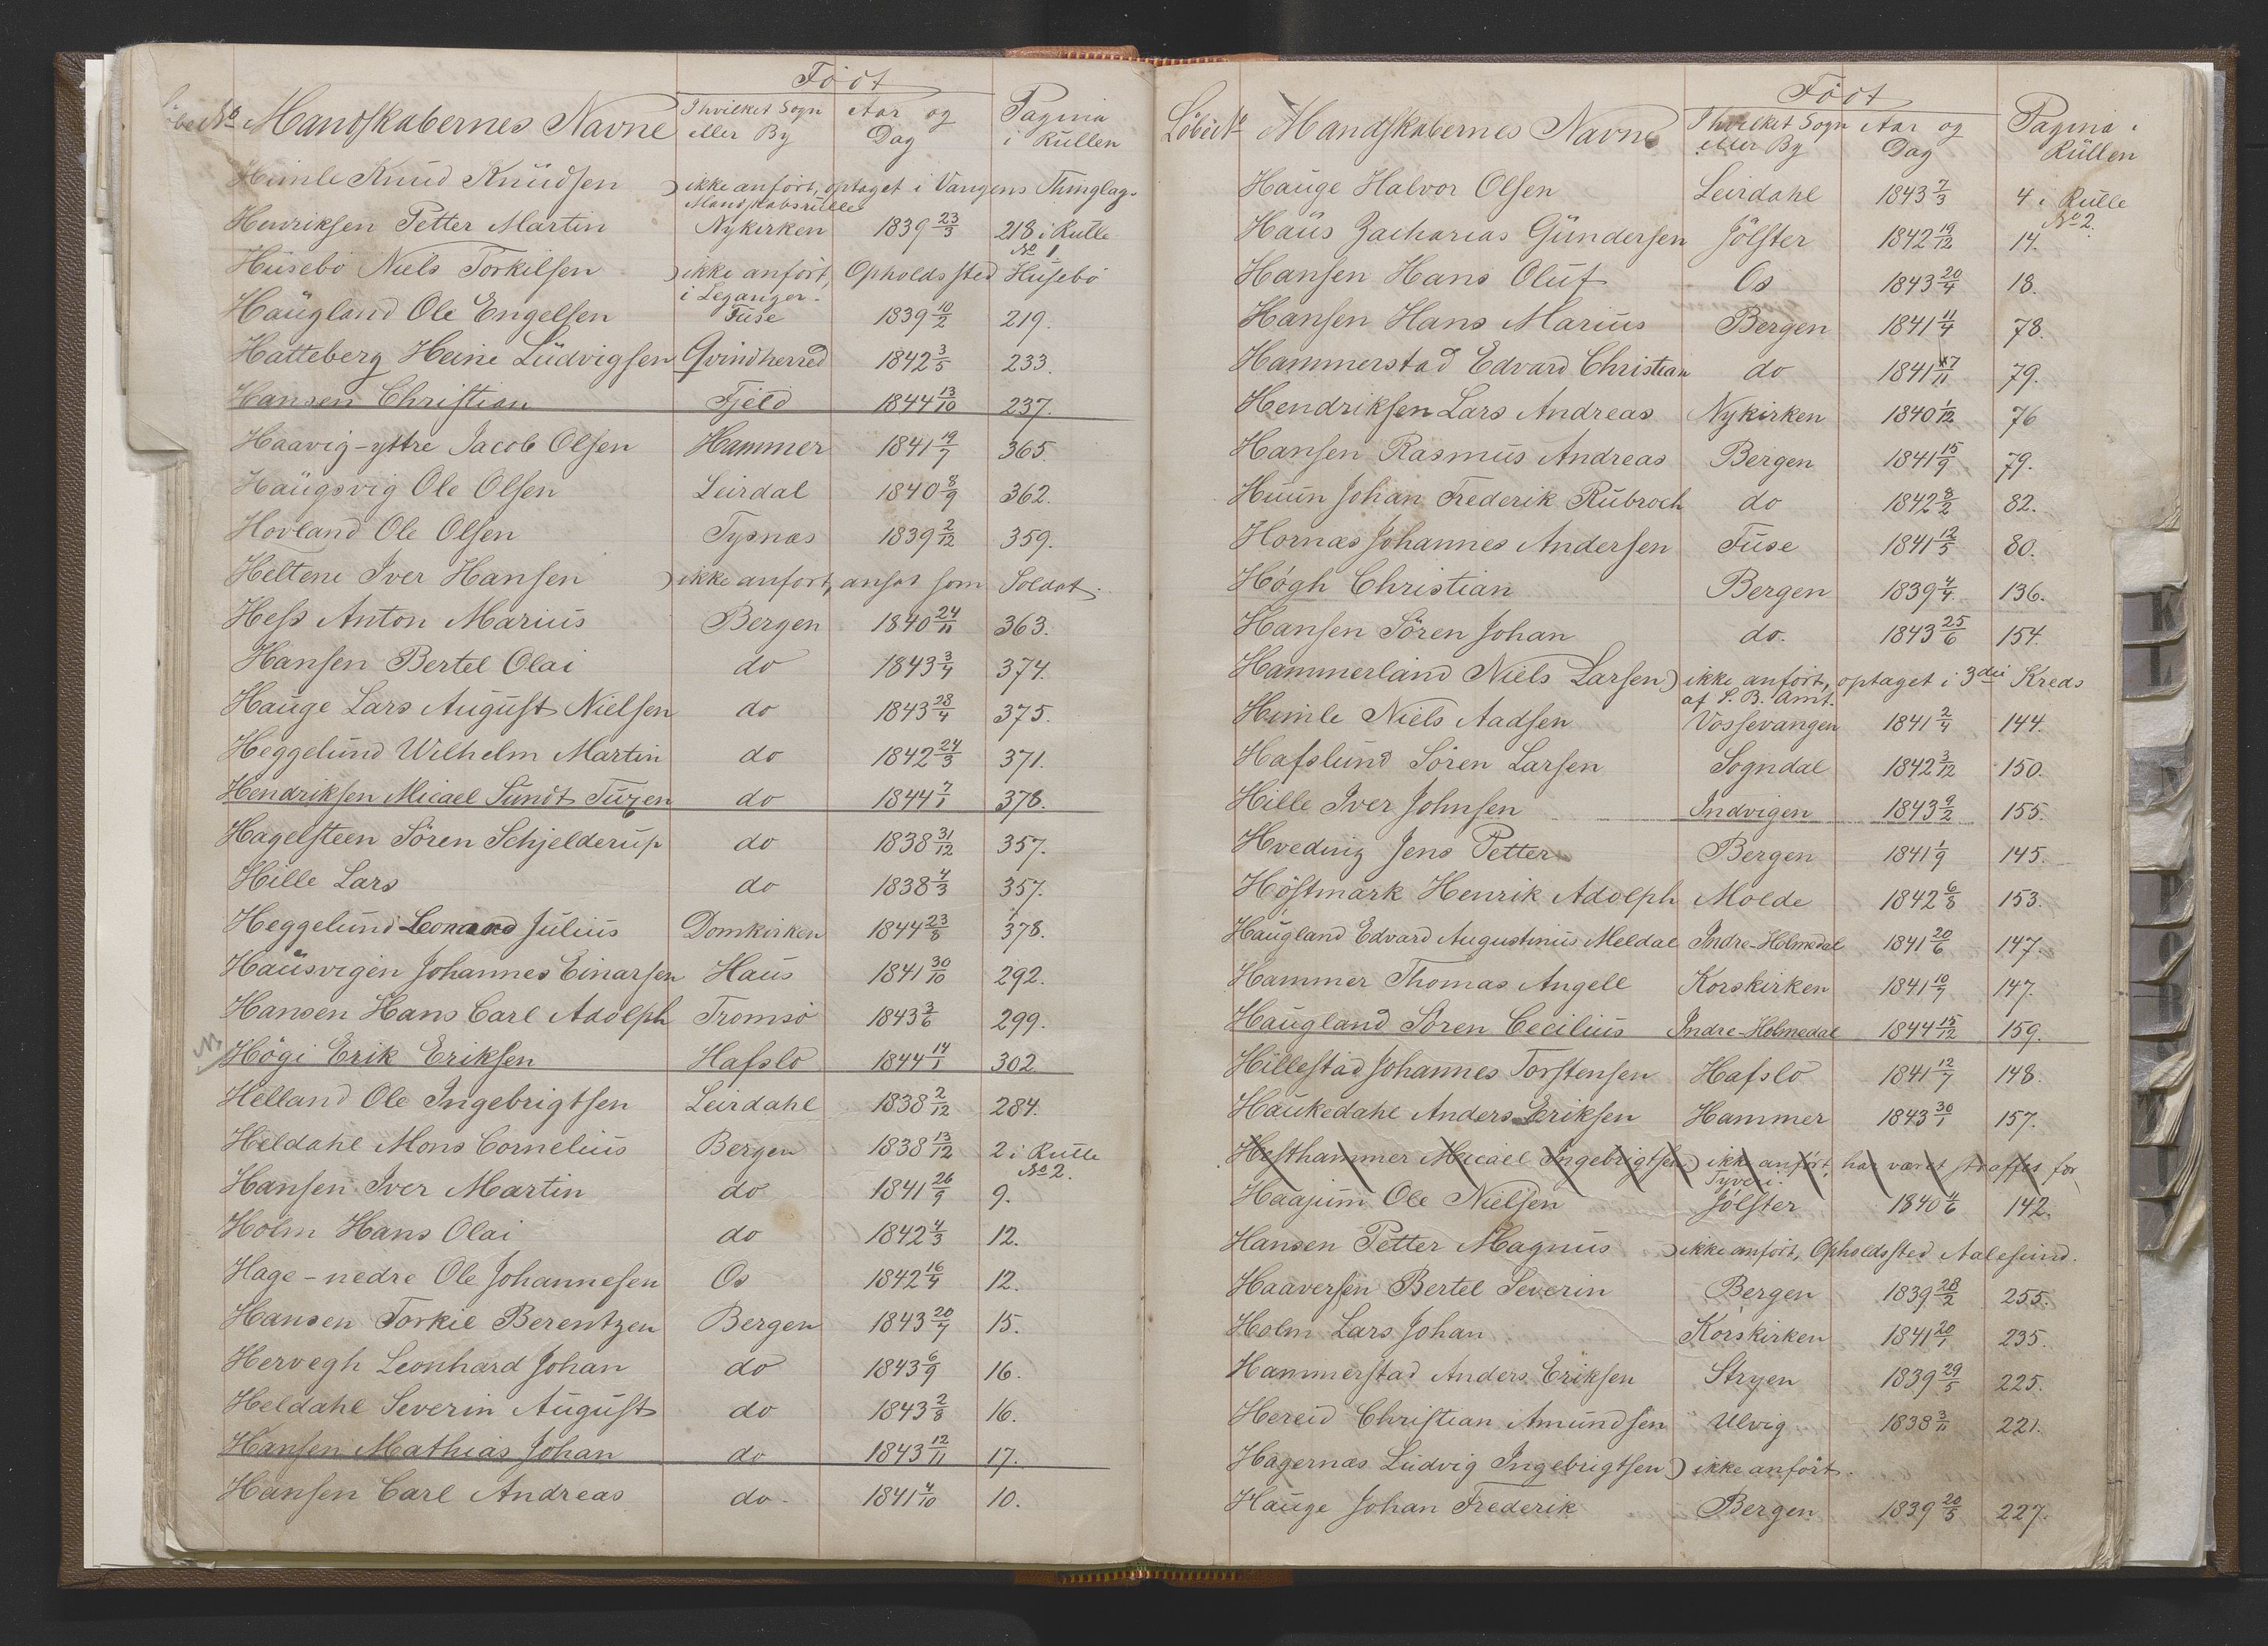 Født
No Mandskabernes Navne I hvilket Sogn eller By Aar og Dag Pagina i Rullen
Himle Knud Knudsen ) ikke anført, optaget i Vangens Thinglags Mandskabsrulle
Henriksen Petter Martin Nykirken 1839 23/3 218 i Rulle No 1
Husebø Niels Torkilsen ) ikke anført, Opholdssted Husebø i Leganger.
Haugland Ole Engelsen Fuse 1839 10/2 219.
Hatteberg Heine Ludvigsen Qvindherred 1842 3/5 233.
Hansen Christian Fjeld 1844 13/10 237.
Haavig-yttre Jacob Olsen Hammer 1841 19/7 365.
Haugsvig Ole Olsen Leirdal 1840 8/9 362.
Hovland Ole Olsen Tysnæs 1839 2/12 359.
Heltene Iver Hansen ) ikke anført, ansat som Soldat.
Hess Anton Marius Bergen 1840 24/11 363.
Hansen Bertel Olai do 1843 3/4 374.
Hauge Lars August Nielsen do 1843 28/4 375.
Heggelund Wilhelm Martin do 1842 24/3 371.
Hendriksen Micael Sundt Tuxen do 1844 7/1 378.
Hagelsteen Søren Schjelderup do 1838 31/12 357.
Hille Lars do 1838 4/3 357.
Heggelund Leonard Julius Domkirken 1844 23/8 378.
Hausvigen Johannes Einarsen Haus 1841 30/10 292.
Hansen Hans Carl Adolph Tromsø 1843 3/6 299.
Høgi Erik Eriksen Hafslo 1844 14/1 302
Helland Ole Ingebrigtsen Leirdahl 1838 2/12 284.
Heldahl Mons Cornelius Bergen 1838 13/12 2 i Rulle No 2.
Hansen Iver Martin do 1841 26/9 9.
Holm Hans Olai do 1842 4/3 12.
Hage-nedre Ole Johannesen Os 1842 16/4 12.
Hansen Torkil Berentzen Bergen 1843 20/7 15.
Hervegh Leonhard Johan do 1843 6/9 16.
Heldahl Severin August do 1843 2/8 16.
Hansen Mathias Johan do 1843 12/11 17.
Hansen Carl Andreas do 1841 4/10 10.
Født
Løbe No Mandskabernes Navne I hvilket Sogn eller By Aar og Dag Pagina i Rullen
Hauge Halvor Olsen Leirdahl 1843 7/3 4 i Rulle No 2.
Haus Zacharias Gundersen Jølster 1842 19/12 14.
Hansen Hans Oluf Os 1843 20/4 18.
Hansen Hans Marius Bergen 1841 11/4 78.
Hammerstad Edvard Christian do 1841 /11 79.
Hendriksen Lars Andreas Nykirken 1840 1/12 76
Hansen Rasmus Andreas Bergen 1841 15/9 79.
Huun Johan Frederik Rubroch do 1842 8/2 82.
Hornæs Johannes Andersen Fuse 1841 12/5 80.
Høgh Christian Bergen 1839 4/4 136.
Hansen Søren Johan do. 1843 25/6 154.
Hammerland Niels Larsen ) ikke anført, optaget i 3die Kreds af S. B. Amt.
Himle Niels Aadsen Vossevangen 1841 2/4 144.
Hafslund Søren Larsen Sogndal 1842 3/12 150.
Hille Iver Johnsen Indvigen 1843 9/2 155.
Hveding Jens Petter Bergen 1841 1/9 145.
Høstmark Henrik Adolph Molde 1842 6/8 153.
Haugland Edvard Augustinus Meldal Indre-Holmedal 1841 20/6 147.
Hammer Thomas Angell Korskirken 1841 10/7 147.
Haugland Søren Cecilius Indre-Holmedal 1844 15/12 159.
Hillestad Johannes Torstensen Hafslo 1841 12/7 148.
Haukedahl Anders Eriksen Hammer 1843 30/1 157.
Hosthammer Micael Ingebrigtsen ) ikke anført, har været straffet for Tyveri.
Haajum Ole Nielsen Jølster 1840 4/6 142.
Hansen Petter Magnus ) ikke anført, Opholdssted Aalesund.
Haaversen Bertel Severin Bergen 1839 28/2 255.
Holm Lars Johan Korskirken 1841 20/1 235.
Hammerstad Anders Eriksen Stryen 1839 29/5 225.
Hereid Christian Amundsen Ulvig 1838 3/11 221.
Hagernæs Ludvig Ingebrigtsen ) ikke anført.
Hauge Johan Frederik Bergen 1839 20/5 227.
K
L